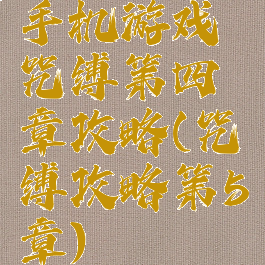 手机游戏
咒缚第四
章攻略(咒
缚攻略第5
章)